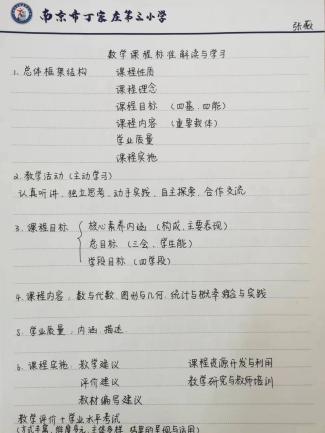 南京市丁家庄第二小学
张薇
数学课程标准解读与学习
1. 总体框架结构 课程性质
课程理念
课程目标 (四基、四能)
课程内容 (重要载体)
学业质量
课程实施
2. 教学活动 (主动学习)
认真听讲、独立思考、动手实践、自主探索、合作交流
3. 课程目标 { 核心素养内涵 (构成、主要表现)
总目标 (三会、学生能)
学段目标 (四学段)
4. 课程内容: 数与代数、图形与几何、统计与概率、综合与实践
5. 学业质量: 内涵、描述
6. 课程实施: 教学建议 课程资源开发与利用
评价建议 教学研究与教师培训
教材编写建议
教学评价+学业水平考试
(方式丰富、维度多元、主体多样、结果的呈现与运用)